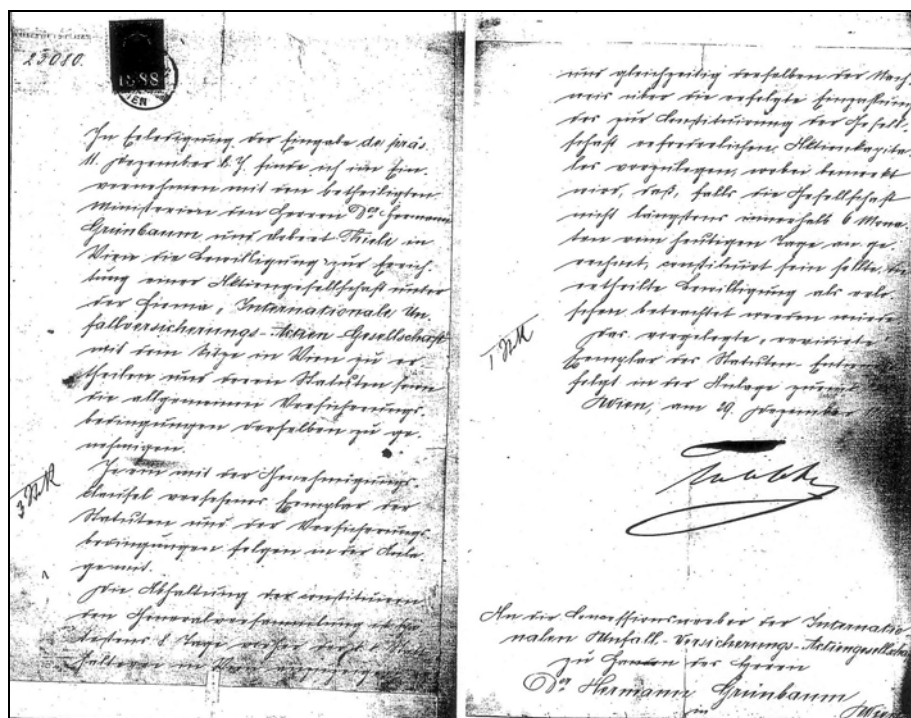 23080.
1888
WIEN
In Erledigung der Eingabe de präs.
11. Dezember l. J. finde ich im Ein-
vernehmen mit den betheiligten
Ministerien den Herren Dor Hermann
Grünbaum und Robert Thiele in
Wien die Bewilligung zur Errich-
tung einer Aktiengesellschaft unter
der Firma „Internationale Un-
fallversicherungs-Actien Gesellschaft
mit dem Sitze in Wien zu er-
theilen und deren Statuten sowie
die allgemeinen Versicherungs-
bedingungen derselben zu ge-
nehmigen.
Je ein mit der Genehmigungs-
clausel versehenes Exemplar der
Statuten und der Versicherungs-
bedingungen folgen in der Anla-
ge mit.
Die Abhaltung der constituiren-
den Generalversammlung ist
8 Tage vorher
in Wien anzuzeigen
und gleichzeitig derselben der Nach-
weis über die erfolgte Einzahlung
des zur Constituirung der Gesell-
schaft erforderlichen Aktienkapita-
les vorzulegen, wobei bemerkt
wird, daß, falls die Gesellschaft
nicht längstens innerhalb 6 Mona-
ten vom heutigen Tage an ge-
rechnet, constituirt sein sollte, die
ertheilte Bewilligung als erlo-
schen betrachtet werden müsse.
Das vorgelegte, revidirte
Exemplar des Statuten-Entw
folgt in der Anlage zurück.
Wien, am 29. Dezember
An die Concessionswerber der Internatio-
nalen Unfall-Versicherungs-Actiengesellschaft
zu Handen des Herrn
Dor Hermann Grünbaum
in Wien